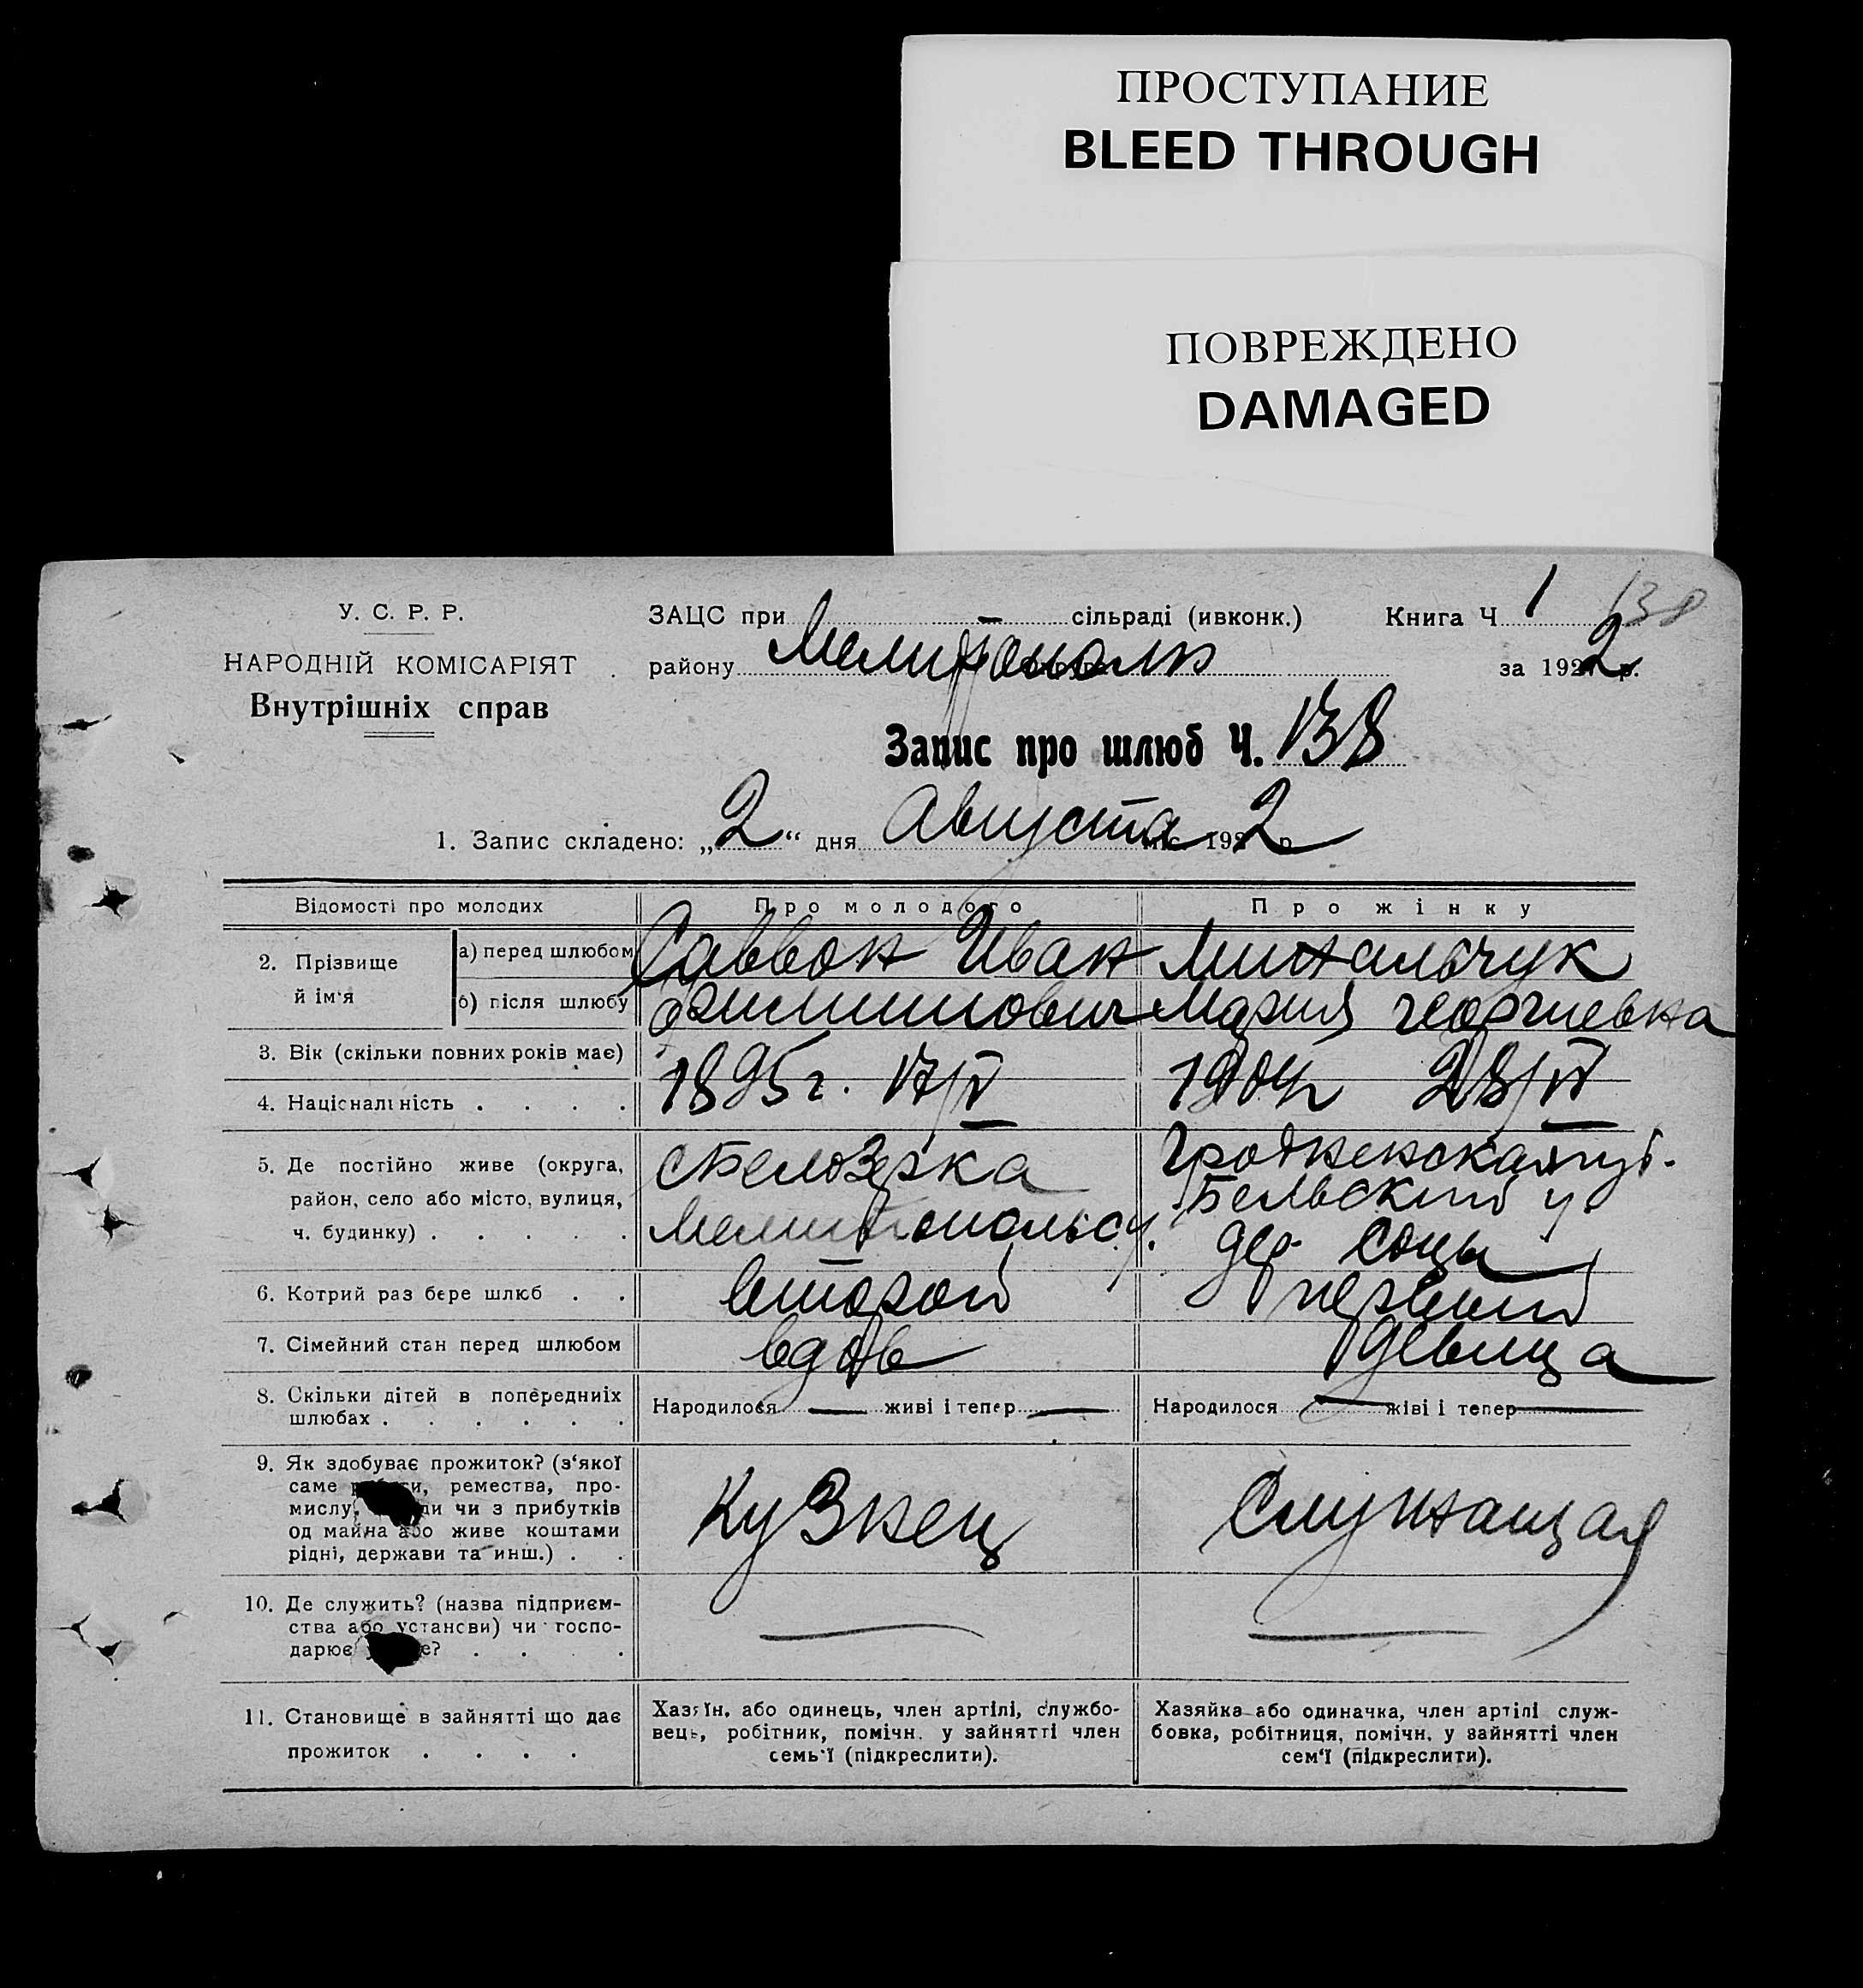 ПРОСТУПАНИЕ
BLEED THROUGH
ПОВРЕЖДЕНО
DAMAGED
У. С. Р. Р.
НАРОДНІЙ КОМІСАРІЯТ
Внутрішніх справ
ЗАЦС при сільраді (ивконк.) Книга Ч 1 138
району Мелитополь за 1922 р.
Запис про шлюб Ч. 138
1. Запис складено: „2“ дня Августа міс. 1922 р
Відомості про молодих
Про молодого
Про жінку
2. Прізвище й ім'я
а) перед шлюбом
б) після шлюбу
Саввон Иван
Филиппович
Михальчук
Мария Георгиевна
3. Вік (скільки повних років має)
4. Національність . . . .
1895 г. 17/IV
1904 г 28/VI
5. Де постійно живе (округа,
район, село або місто, вулиця,
ч. будинку) . . . . .
с Белозерка
Мелитопольс. у.
Гродненская губ.
Бельский у.
дер Соцы
6. Котрий раз бере шлюб . .
второй
первый
7. Сімейний стан перед шлюбом
вдов
девица
8. Скільки дітей в попередниіх
шлюбах . . . . . .
Народилося — живі і тепер —
Народилося — жіві і тепер —
9. Як здобуває прожиток? (з'якої
саме ремества, про-
мислу, чи з прибутків
од майна або живе коштами
рідні, держави та инш.) . .
Кузнец
Служащая
10. Де служить? (назва підприєм-
ства або установи) чи госпо-
дарює . . .
—
—
11. Становище в зайнятті що дає
прожиток . . . .
Хазяїн, або одинець, член артілі, службо-
вець, робітник, помічн. у зайнятті член
семь'ї (підкреслити).
Хазяйка або одиначка, член артілі служ-
бовка, робітниця, помічн. у зайнятті член
сем'ї (підкреслити).